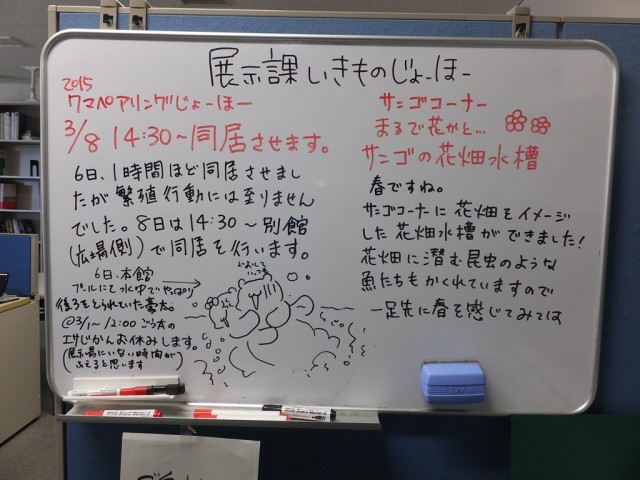 展示課いきものじょーほー
2015
クマペアリングじょーほー
3/8 14:30～同居させます。
6日、1時間ほど同居させまし
たが繁殖行動には至りません
でした。8日は14:30～別館
(広場側)で同居を行います。
6日、本館
プールにて水中でやっぱり
後ろをとられていた豪太。
@3/1～ 12:00 ごう太の
エサじかんお休みします。
(展示場にいない時間が
ふえると思います
サンゴコーナー
まるで花かと…
サンゴの花畑水槽
春ですね。
サンゴコーナーに花畑をイメージ
した花畑水槽ができました!
花畑に潜む昆虫のような
魚たちもかくれていますので
一足先に春を感じてみては